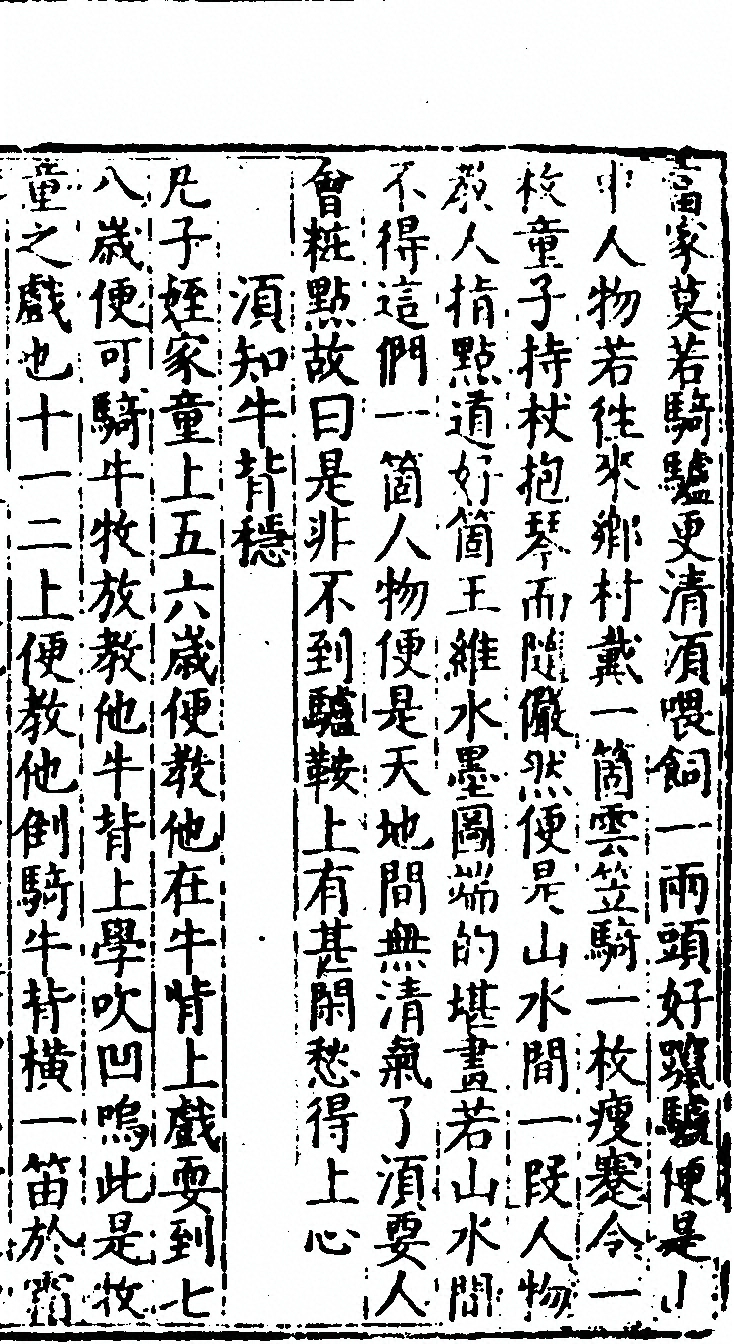 富家莫若騎驢更清湏喂飼一兩頭好驢便是山
中人物若徃來鄉村戴一箇雲笠騎一枚瘦蹇令一
枚童子持杖抱琴而隨儼然便是山水間一段人物
教人指點道好箇王維水墨圖端的堪畫若山水間
不得這們一箇人物便是天地間無清氣了湏要人
曾粧點故曰是非不到驢鞍上有甚閑愁得上心
湏知牛背穩
凡子姪家童上五六歲便教他在牛背上戲耍到七
八歲便可騎牛牧放教他牛背上學吹凹嗚此是牧
童之戲也十一二上便教他倒騎牛背橫一笛於霜